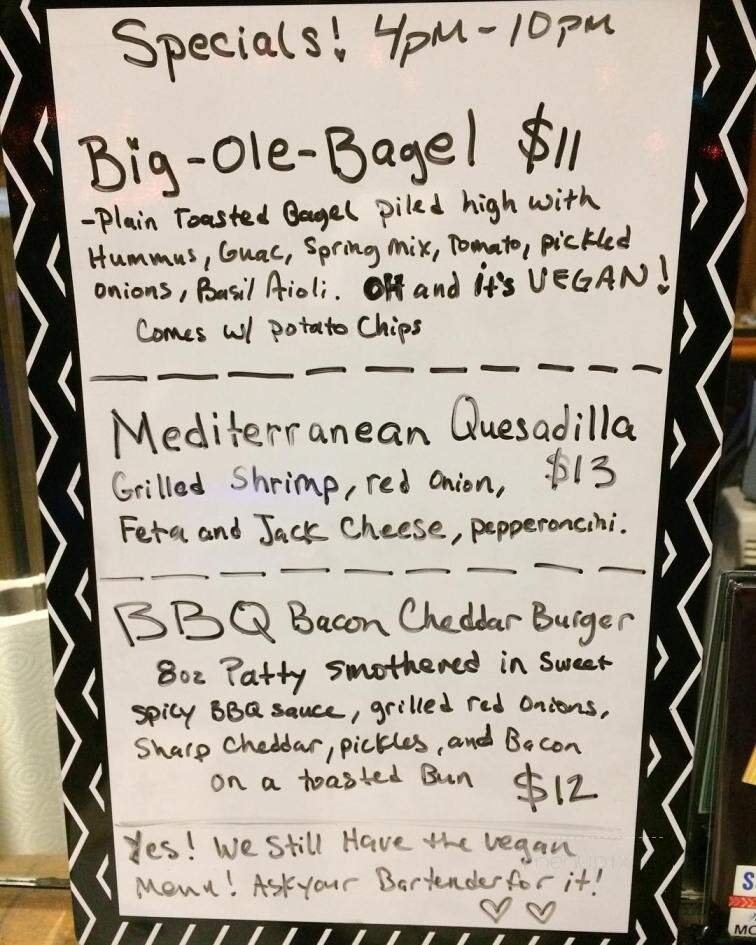 Specials! 4pm-10pm
Big-Ole-Bagel $11
-Plain Toasted Bagel piled high with
Hummus, Guac, Spring mix, Tomato, pickled
onions, Basil Aioli. OH and it's VEGAN!
Comes w/ potato Chips
Mediterranean Quesadilla
Grilled Shrimp, red onion, $13
Feta and Jack Cheese, pepperoncini.
BBQ Bacon Cheddar Burger
8oz Patty smothered in Sweet
spicy BBQ sauce, grilled red onions,
Sharp Cheddar, pickles, and Bacon
on a toasted Bun $12
Yes! We Still Have the vegan
Menu! Ask your Bartender for it!